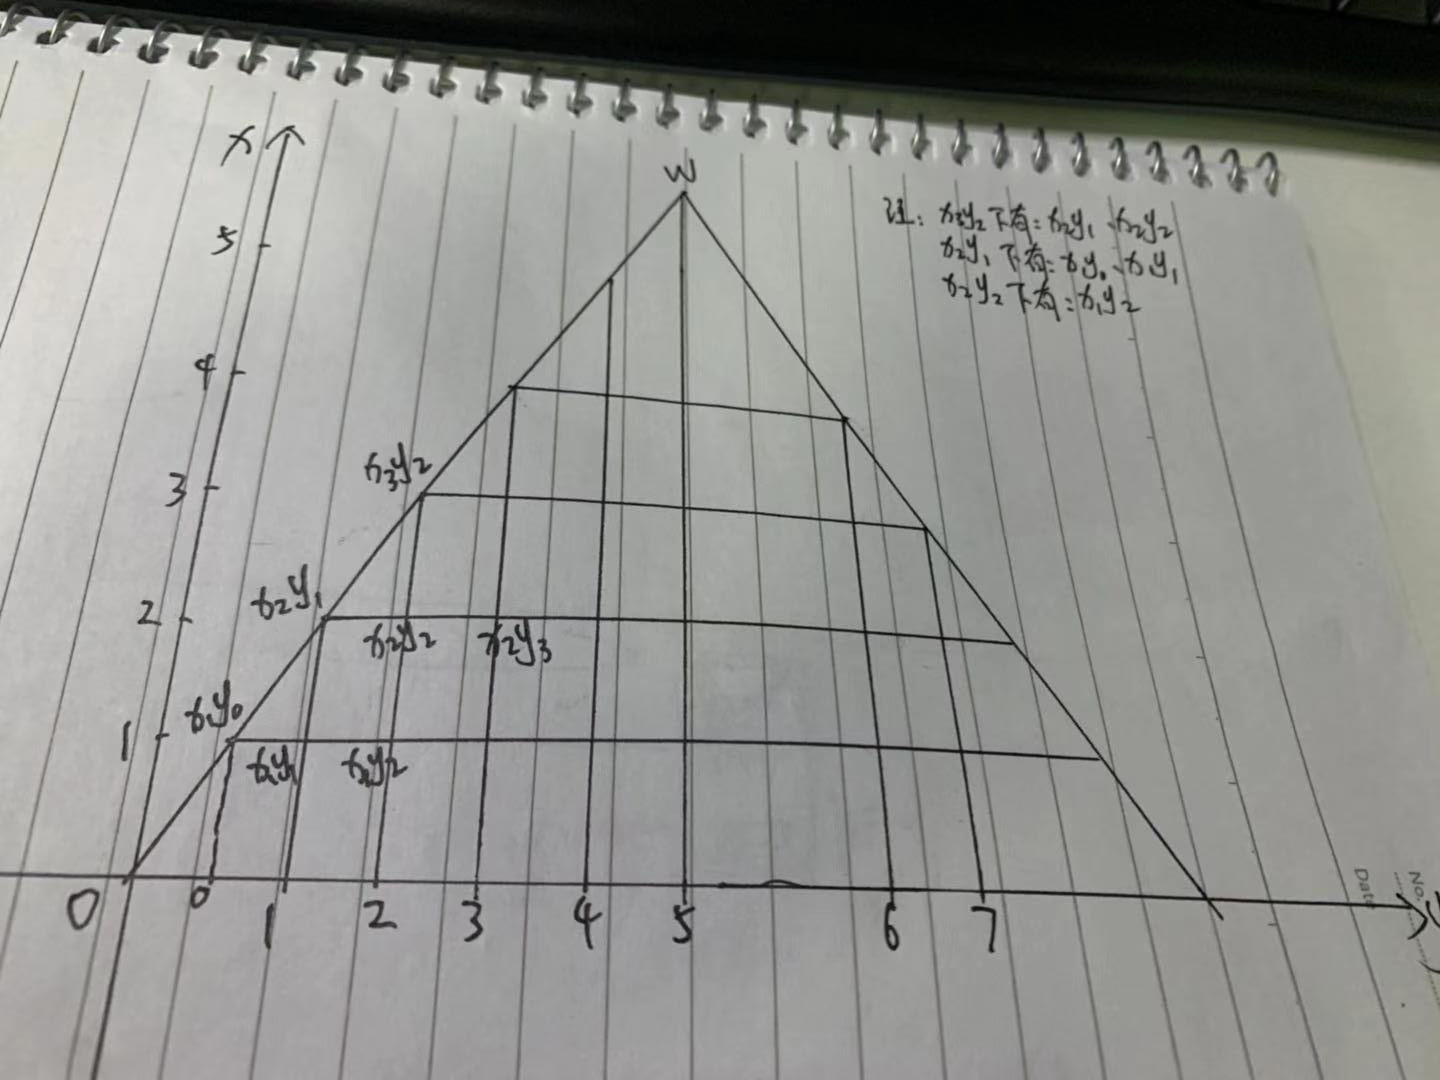 x
W
注: x3y2下有: x2y1、x2y2
x2y1下有: x1y0、x1y1
x2y2下有: x1y2
5
4
3
x3y2
2
x2y1
x2y2
x2y3
1
x1y0
x1y1
x1y2
0
0
1
2
3
4
5
6
7
y
No.
Date